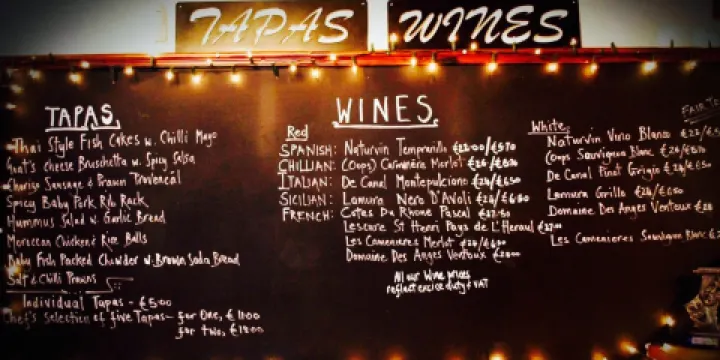 TAPAS WINES
TAPAS
Thai Style Fish Cakes w. Chilli Mayo
Goat's cheese Bruschetta w. Spicy Salsa
Chorizo Sausage & Prawn Provencal
Spicy Baby Pork Rib Rack
Hummus Salad w. Garlic Bread
Moroccan Chicken & Rice Balls
Baby Fish Packed Chowder w. Brown Soda Bread
Salt & Chilli Prawns
Individual Tapas - €5.00
Chef's Selection of five Tapas - for One, €11.00
for two, €18.00
WINES
Red
SPANISH: Naturvin Tempranillo
CHILLIAN: (Oops) Carmenere Merlot
ITALIAN: De Canal Montepulciano €24/€6.50
SICILIAN: Lamura Nero D'Avoli €24/€6.50
FRENCH: Cotes Du Rhone Pascal
Lescure St Henri Pays de L'Heraul
Les Camenieres Merlot
Domaine Des Anges Ventoux
All our Wine prices
reflect excise duty & VAT
White
Naturvin Vino Blanco
(Oops Sauvignon Blanc
De Canal Pinot Grigio
Lamura Grillo
Domaine Des Anges Ventoux
Les Camenieres Sauvignon Blanc